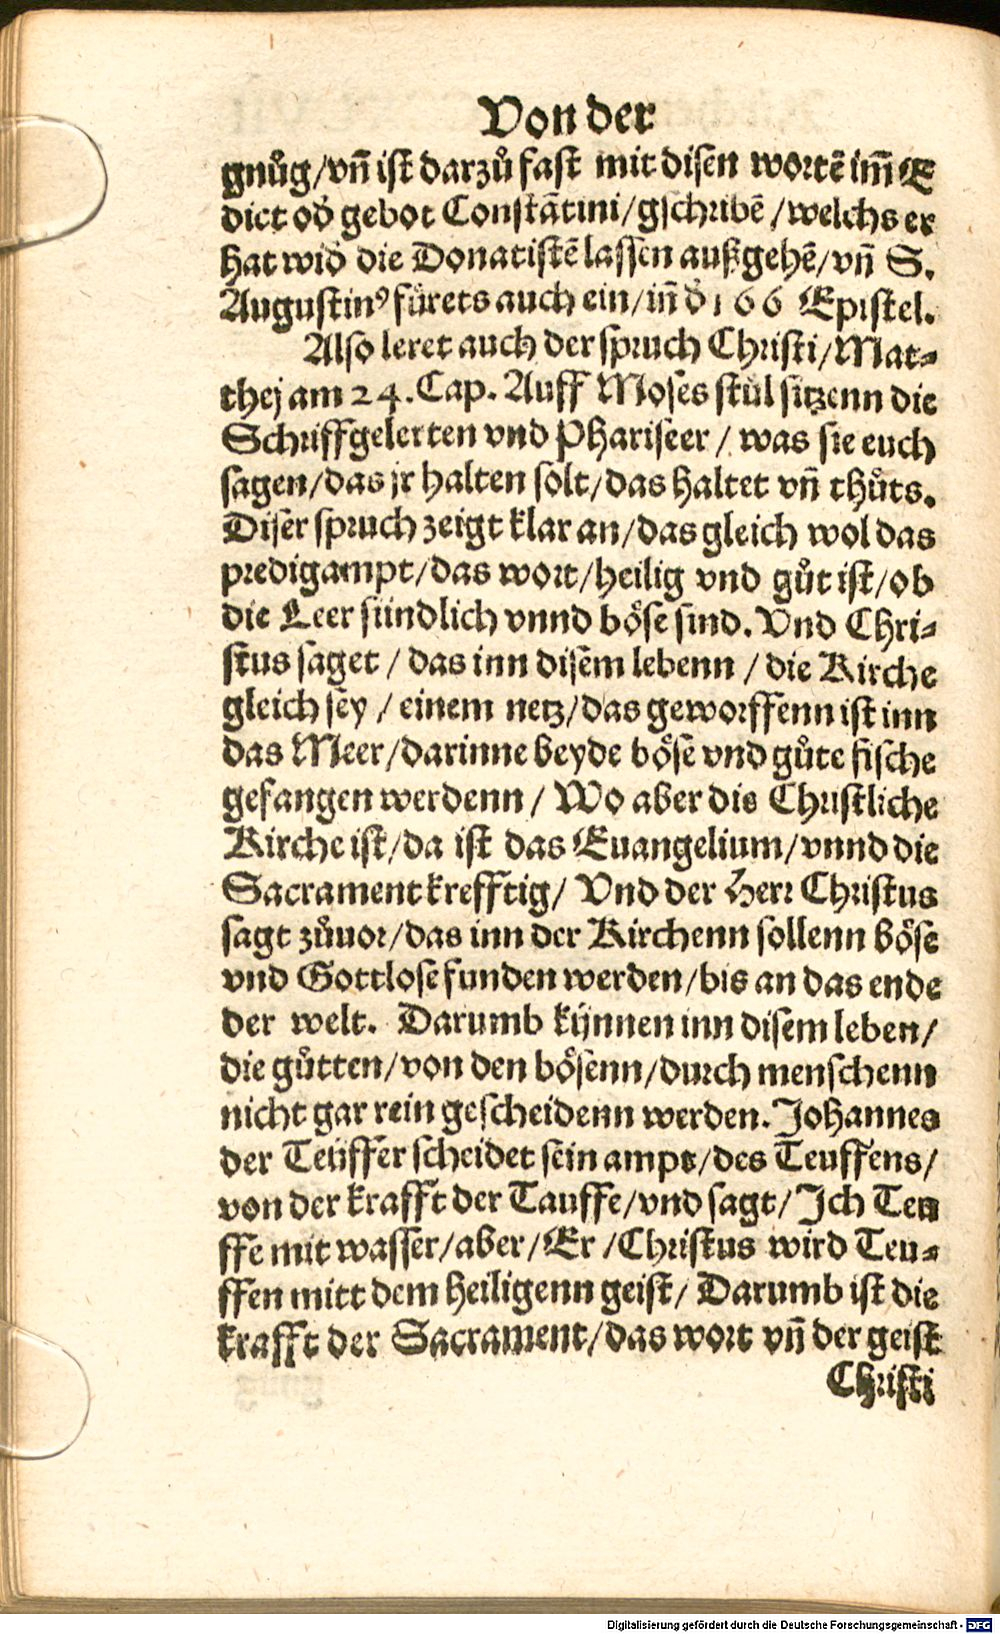 Von der
gnůg/vñ ist darzů fast mit disen wortē im̄ E
dict od̕ gebot Constātini/gschribē/welchs er
hat wid̕ die Donatistē lassen außgehē/vñ S.
Augustinꝰ fürets auch ein/iñ d̕ 166 Epistel.
Also leret auch der spruch Christi/Mat⸗
thej am 24. Cap. Auff Moses stůl sitzenn die
Schriffgelerten vnd Phariseer/ was sie euch
sagen/das jr halten solt/das haltet vñ thůts.
Diser spruch zeigt klar an/das gleich wol das
predigampt/das wort/heilig vnd gůt ist/ob
die Leer sündlich vnnd böse sind. Vnd Chri⸗
stus saget/ das inn disem lebenn/ die Kirche
gleich sey/ einem netz/das geworffenn ist inn
das Meer/darinne beyde böse vnd gůte fische
gefangen werdenn/ Wo aber die Christliche
Kirche ist/da ist das Euangelium/vnnd die
Sacrament krefftig/ Vnd der Herr Christus
sagt zůuor/das inn der Kirchenn sollenn böse
vnd Gottlose funden werden/bis an das ende
der welt. Darumb kijnnen inn disem leben/
die gůtten/von den bösenn/durch menschenn
nicht gar rein gescheidenn werden. Johannes
der Teüffer scheidet sein ampt/des Teuffens/
von der krafft der Tauffe/vnd sagt/Ich Teu
ffe mit wasser/aber/Er/Christus wird Teu⸗
ffen mitt dem heiligenn geist/ Darumb ist die
krafft der Sacrament/das wort vñ der geist
Christi
Digitalisierung gefördert durch die Deutsche Forschungsgemeinschaft - DFG